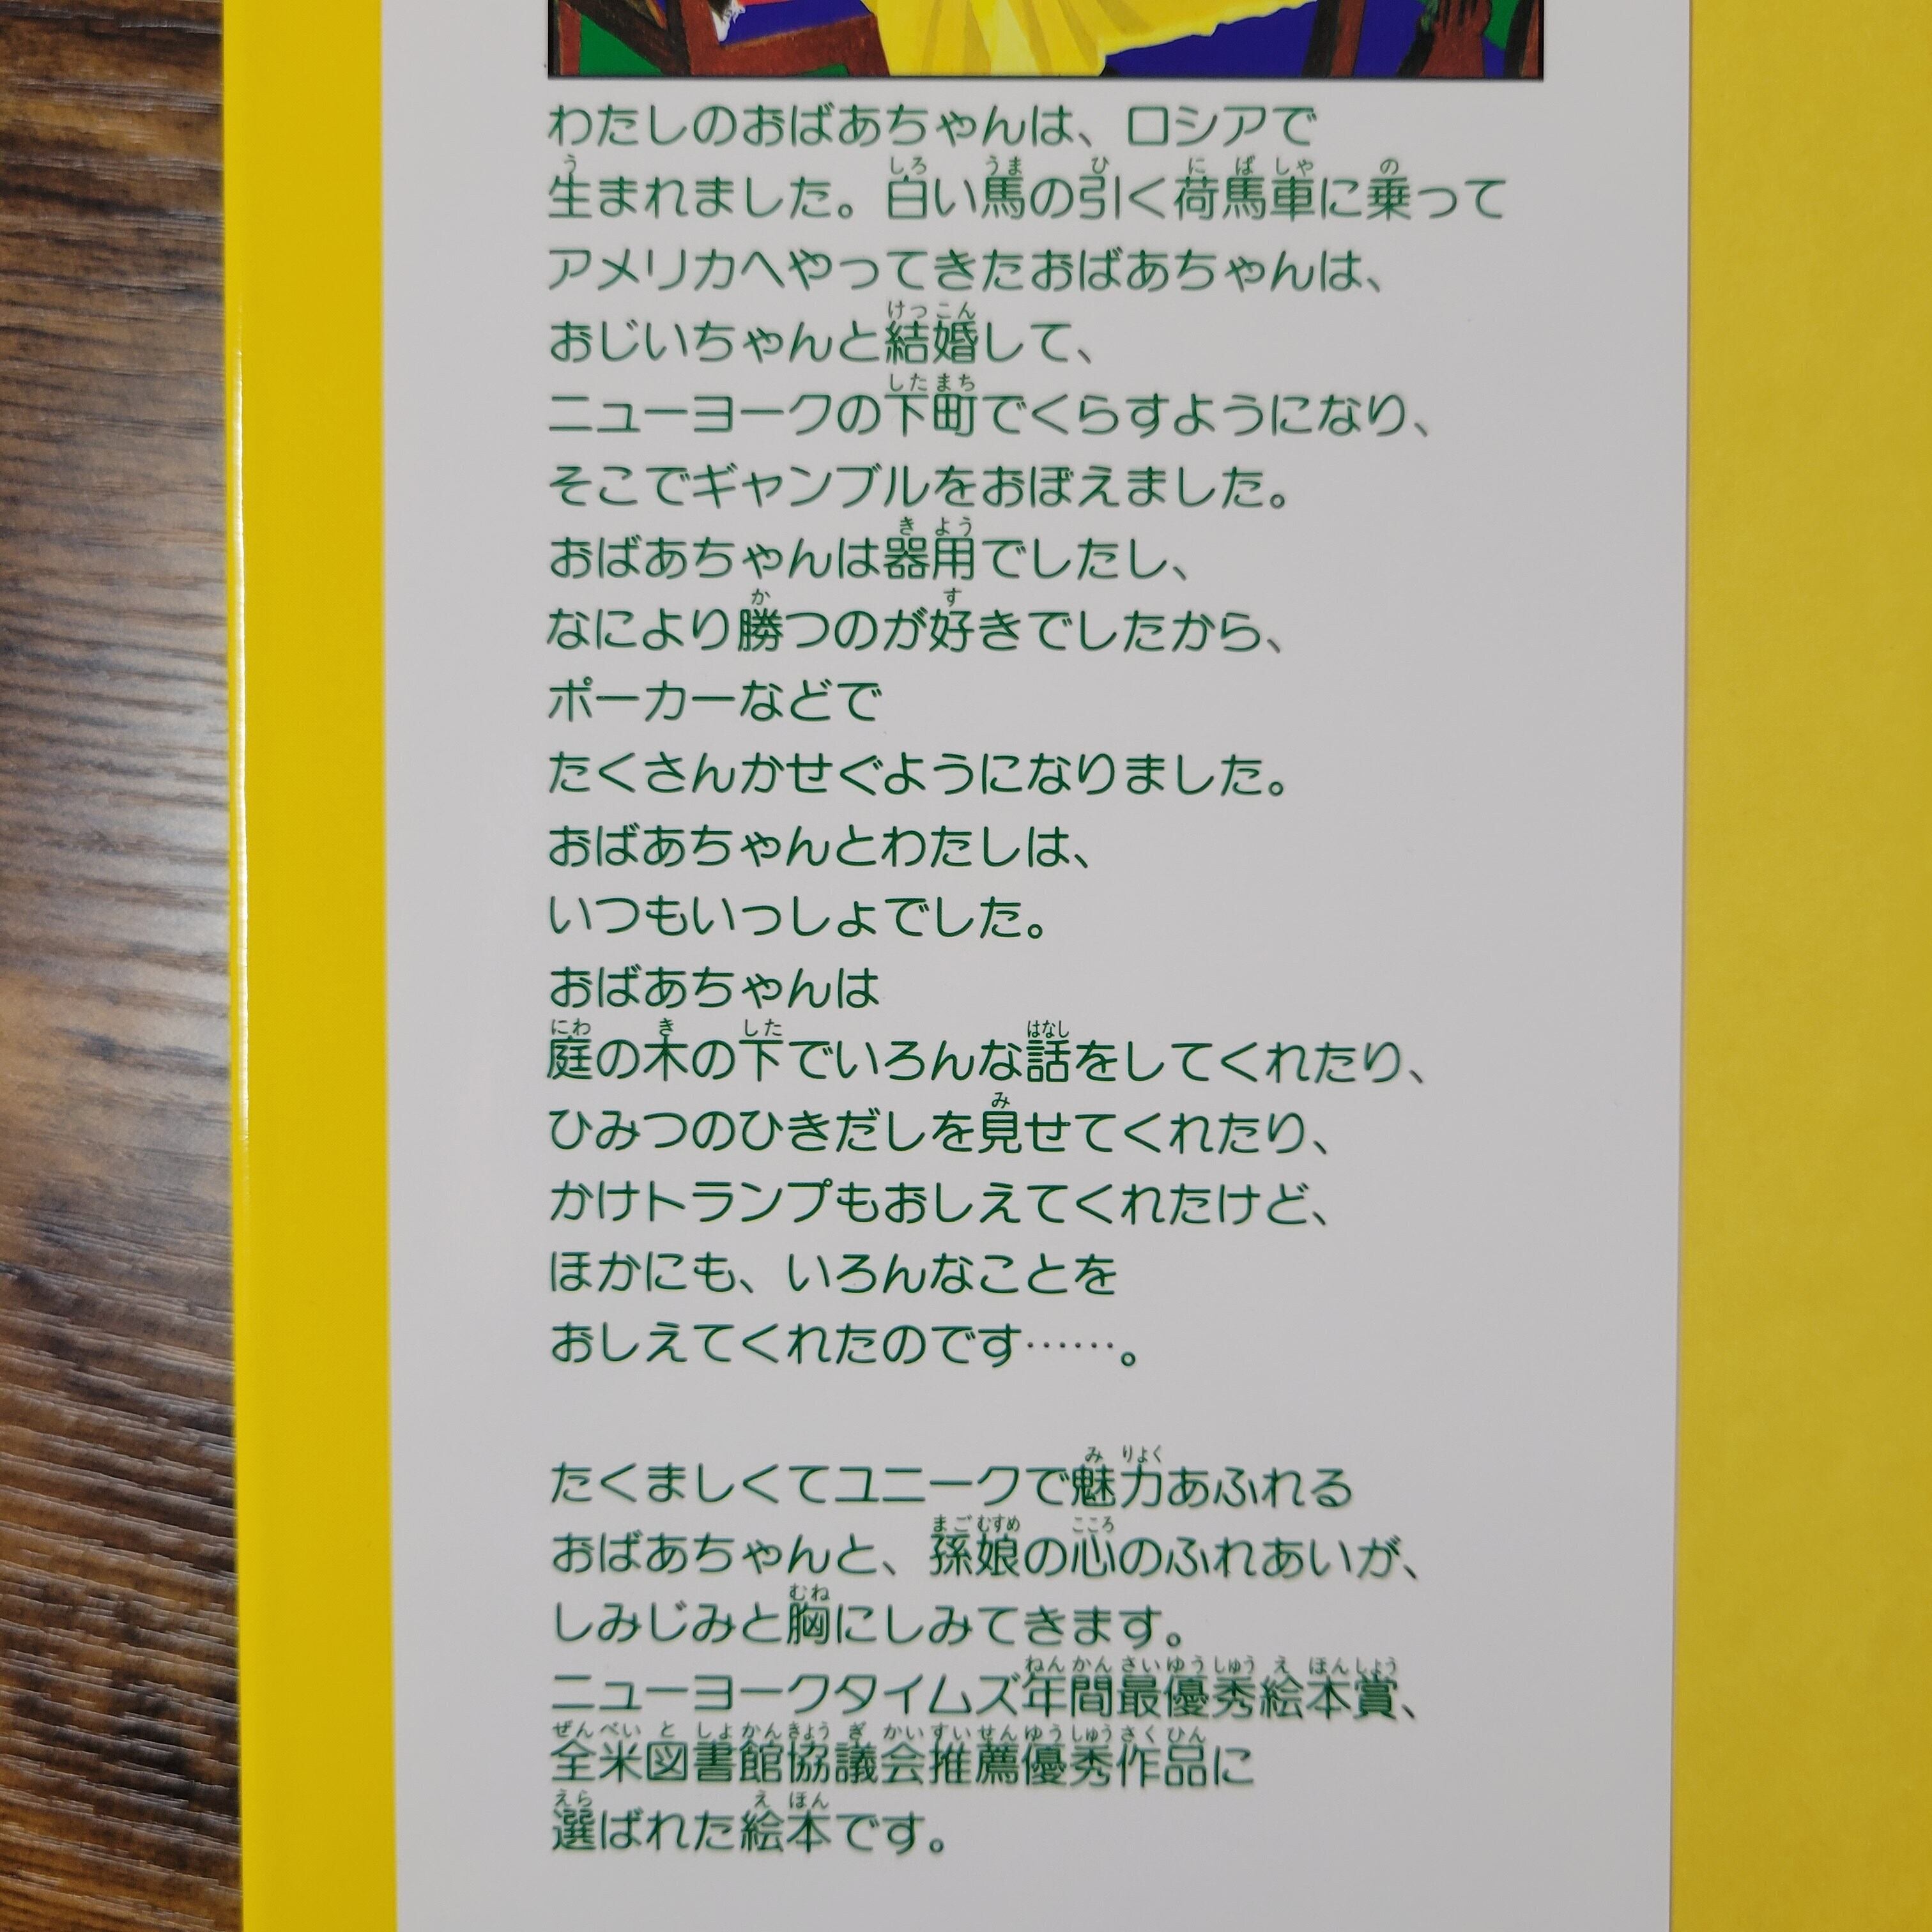 わたしのおばあちゃんは、ロシアで
生まれました。白い馬の引く荷馬車に乗って
アメリカへやってきたおばあちゃんは、
おじいちゃんと結婚して、
ニューヨークの下町でくらすようになり、
そこでギャンブルをおぼえました。
おばあちゃんは器用でしたし、
なにより勝つのが好きでしたから、
ポーカーなどで
たくさんかせぐようになりました。
おばあちゃんとわたしは、
いつもいっしょでした。
おばあちゃんは
庭の木の下でいろんな話をしてくれたり、
ひみつのひきだしを見せてくれたり、
かけトランプもおしえてくれたけど、
ほかにも、いろんなことを
おしえてくれたのです……。
たくましくてユニークで魅力あふれる
おばあちゃんと、孫娘の心のふれあいが、
しみじみと胸にしみてきます。
ニューヨークタイムズ年間最優秀絵本賞、
全米図書館協議会推薦優秀作品に
選ばれた絵本です。